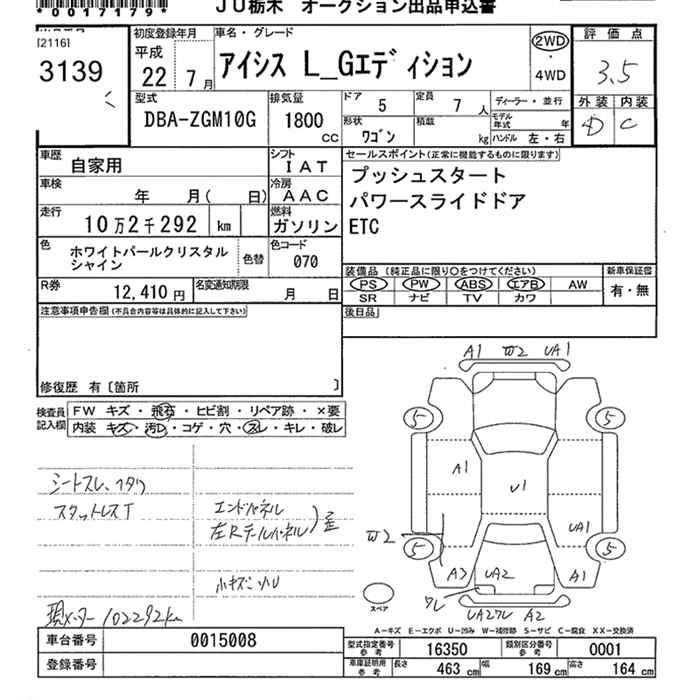 *00017179*
JU栃木 オークション出品申込書
[2116]
3139
初度登録年月
平成
22 年 7 月
車名・グレード
アイシス L_Gエディション
2WD
・
4WD
評価点
3.5
外装 内装
D C
型式
DBA-ZGM10G
排気量
1800 CC
ドア 5
定員 7 人
ディーラー・並行
形状 ワゴン
積載 kg
モデル年式 年
ハンドル 左・右
車歴 自家用
シフト IAT
車検 年 月( 日)
冷房 AAC
走行 10万2千292 km
燃料 ガソリン
色 ホワイトパールクリスタル
シャイン
色替
色コード 070
R券 12,410円
名変通知期限 月 日
セールスポイント(正常に機能するものに限ります)
プッシュスタート
パワースライドドア
ETC
装備品(純正品に限り○をつけてください)
PS PW ABS エアB AW
SR ナビ TV カワ
新車保証書
有・無
後日品
注意事項申告欄(不具合内容等は具体的に記入して下さい)
修復歴 有〔箇所 〕
検査員
記入欄
FW キズ・飛石・ヒビ割・リペア跡・×要
内装 キズ・汚D・コゲ・穴・スレ・キレ・破レ
シートスレ、フタワ
スタットレスT
エンドパネル
左Rテールパネル)歪
小キズ・小U
現メーター102292km
A1 W2 UA1
5 5
A1
U1
UA1
W2
5 5
A3 UA2 A1
ワレ
UA2ワレ A2
スペア
A-キズ E-エクボ U-凹み W-補修跡 S-サビ C-腐食 XX-交換済
車台番号 0015008
登録番号
型式指定番号
参考
16350
類別区分番号
参考
0001
車庫証明用
参考
長さ 463 cm 幅 169 cm 高さ 164 cm